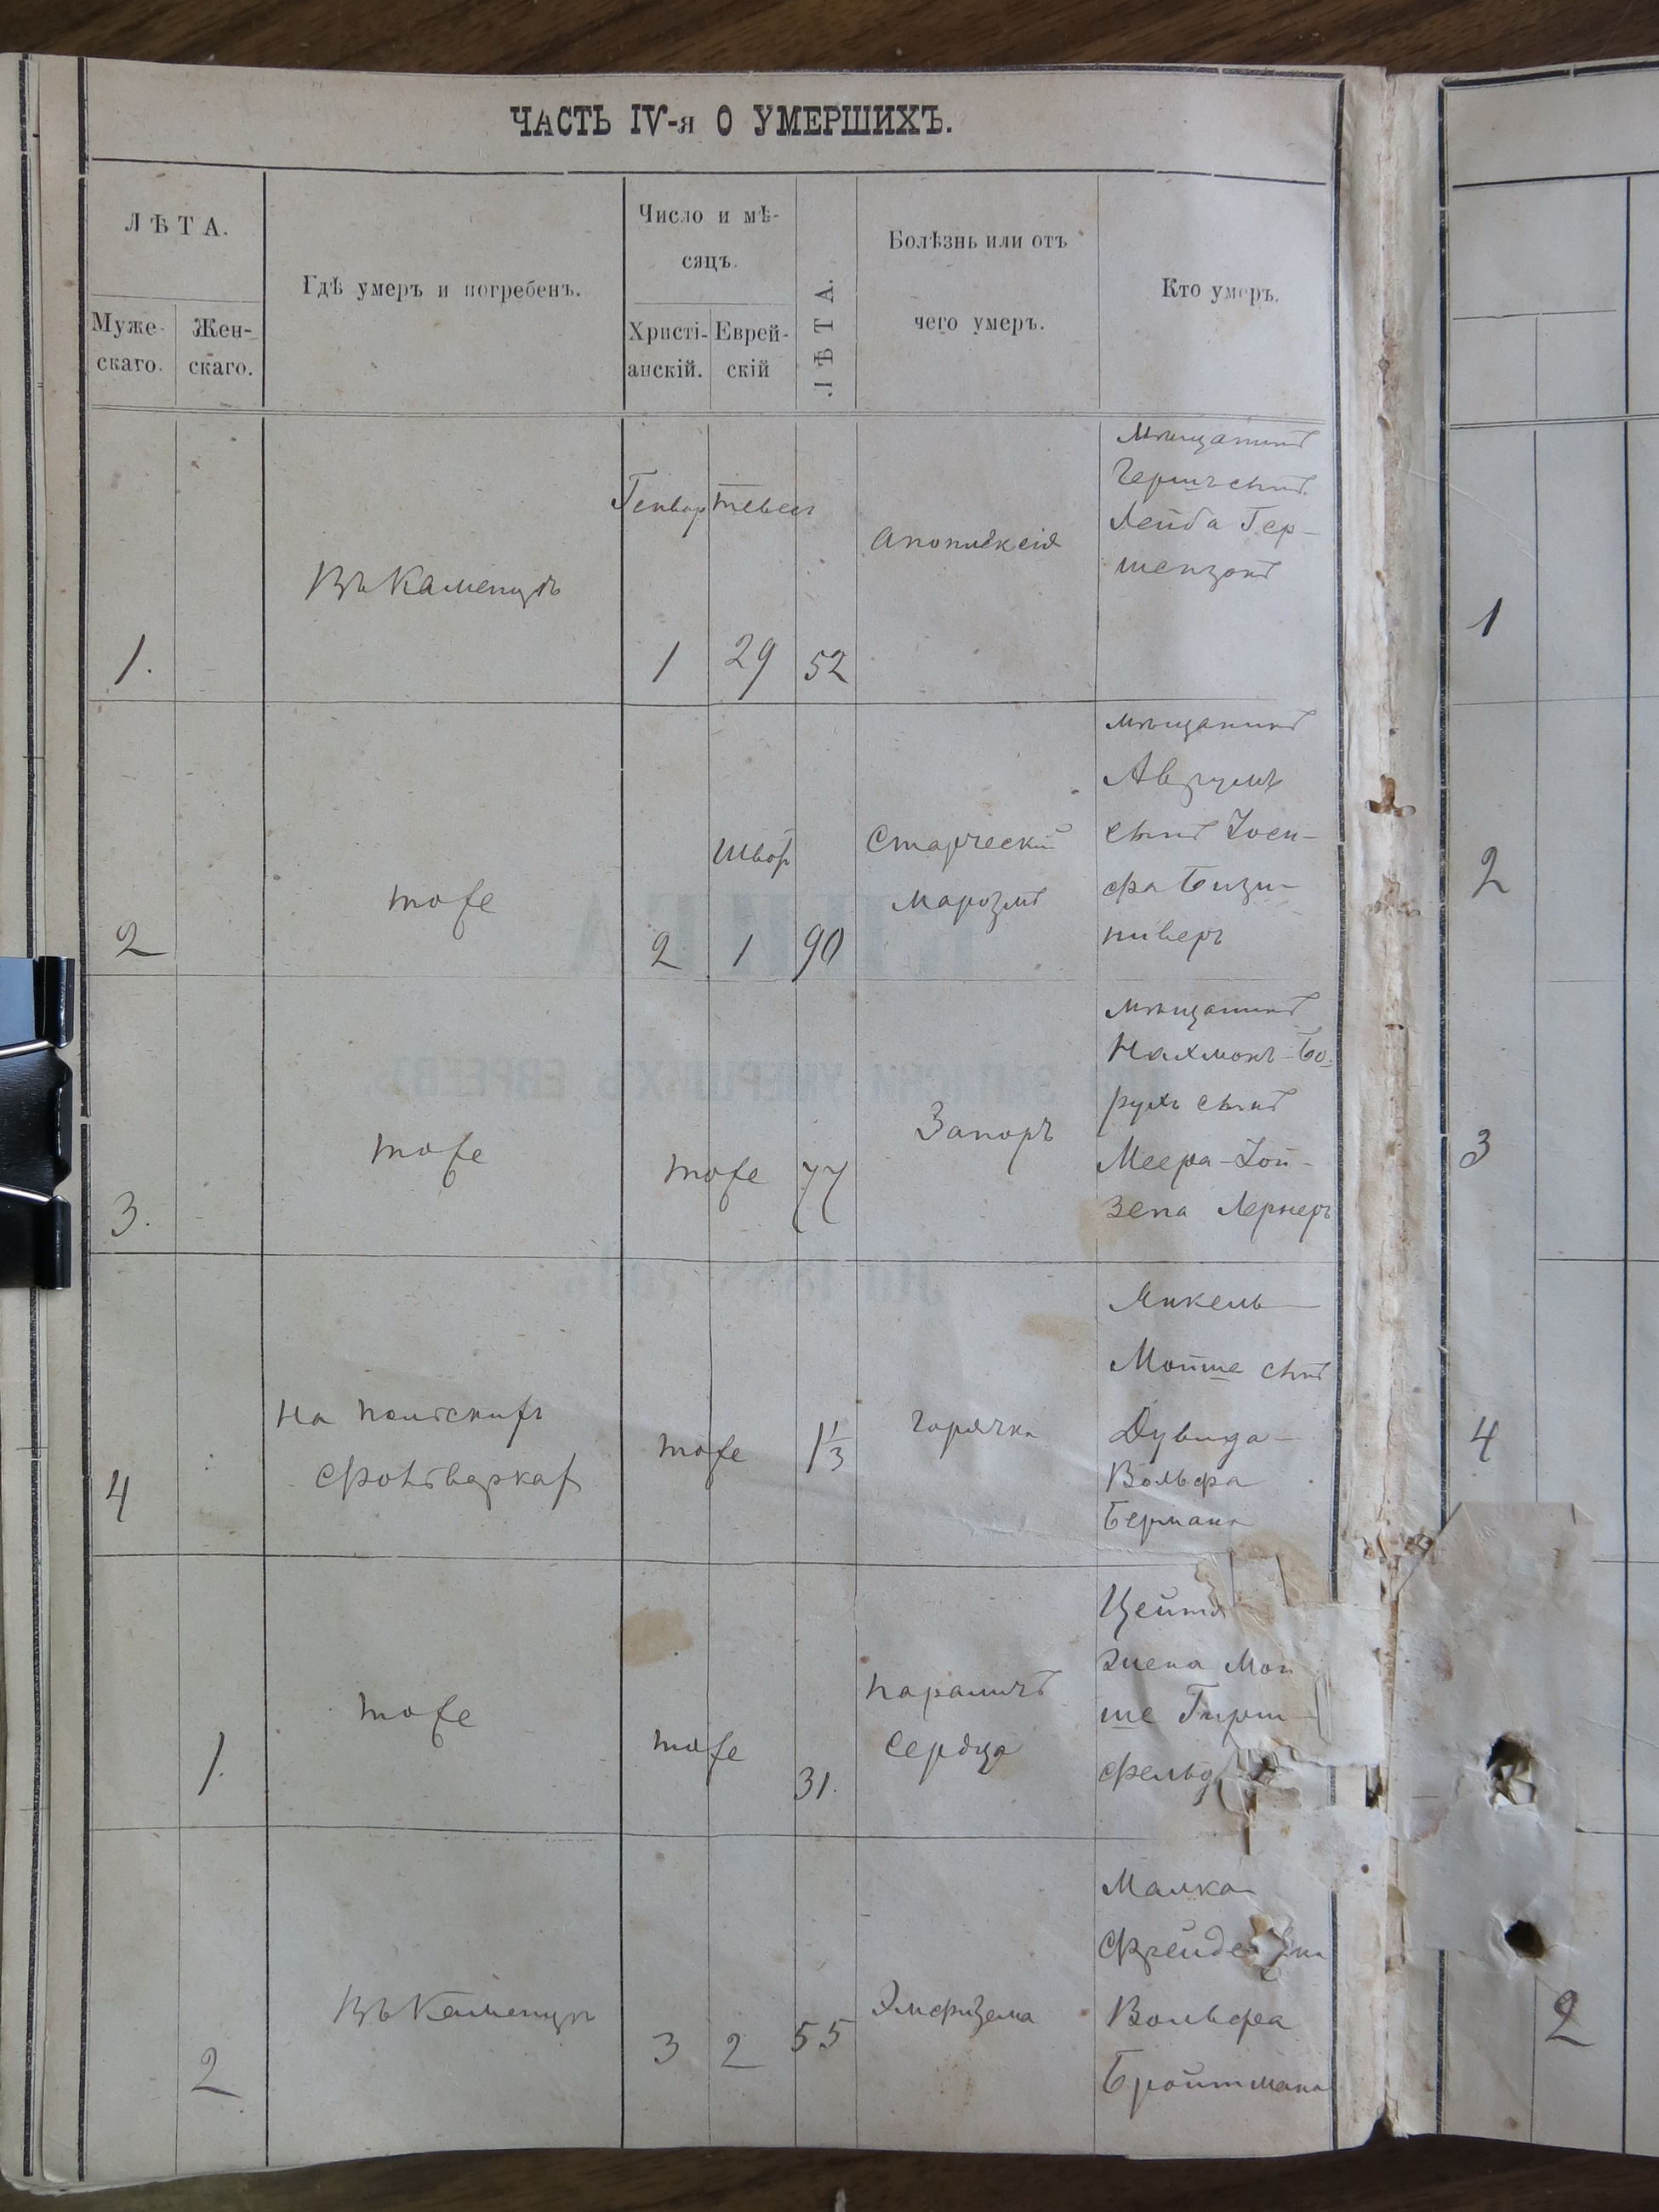 ЧАСТЬ IV-я О УМЕРШИХЪ.
ЛѢТА.
Муже-
скаго.
Жен-
скаго.
Гдѣ умеръ и погребенъ.
Число и мѣ-
сяцъ.
Христі-
анскій.
Еврей-
скій
ЛѢТА.
Болѣзнь или отъ
чего умеръ.
Кто умеръ.
1.
Въ Каменцѣ
Генвар
1
тевес
29
52
апоплексія
мѣщанинъ
Гершъ сынъ
Лейба Гер-
шензонъ
1
2
тоже
2
Швот
1
90
Старческій
маразмъ
мѣщанинъ
Аврумъ
сынъ Іоси-
фа
2
3.
тоже
тоже
77
Запоръ
мѣщанинъ
Нахмонъ-Бо-
рухъ сынъ
Меера-Зой-
зепа Лернеръ
3
4
На польскихъ
фольваркахъ
тоже
1 1/3
горячка
Янкель
Мойше сынъ
Дувида-
Вольфа
Бермана
4
1.
тоже
тоже
31.
параличъ
сердца
Цейтл
жена Мой
ше Гирш-
фельд
2
Въ Каменцѣ
3
2
55
Эмфизема
Малка
Фрейде
Вольфа
Бройтмана
2